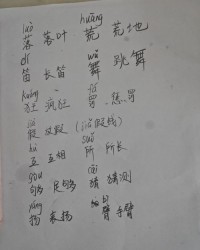 luò huāng
落 落叶 荒 荒地
dí wǔ
笛 长笛 舞 跳舞
kuáng fá
狂 疯狂 罚 惩罚
jiǎ
假 放假
hù suǒ
互 互相 所 所长
gòu cāi
够 足够 猜 猜测
yáng bì
扬 表扬 臂 手臂